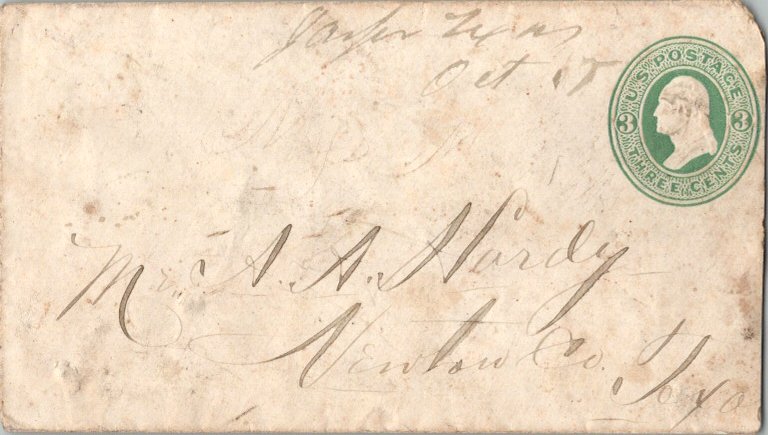 Jasper Texas
Oct 17
U.S. POSTAGE
3 3
THREE CENTS
Mr. A. A. Hardy
Newton Co.
Txs